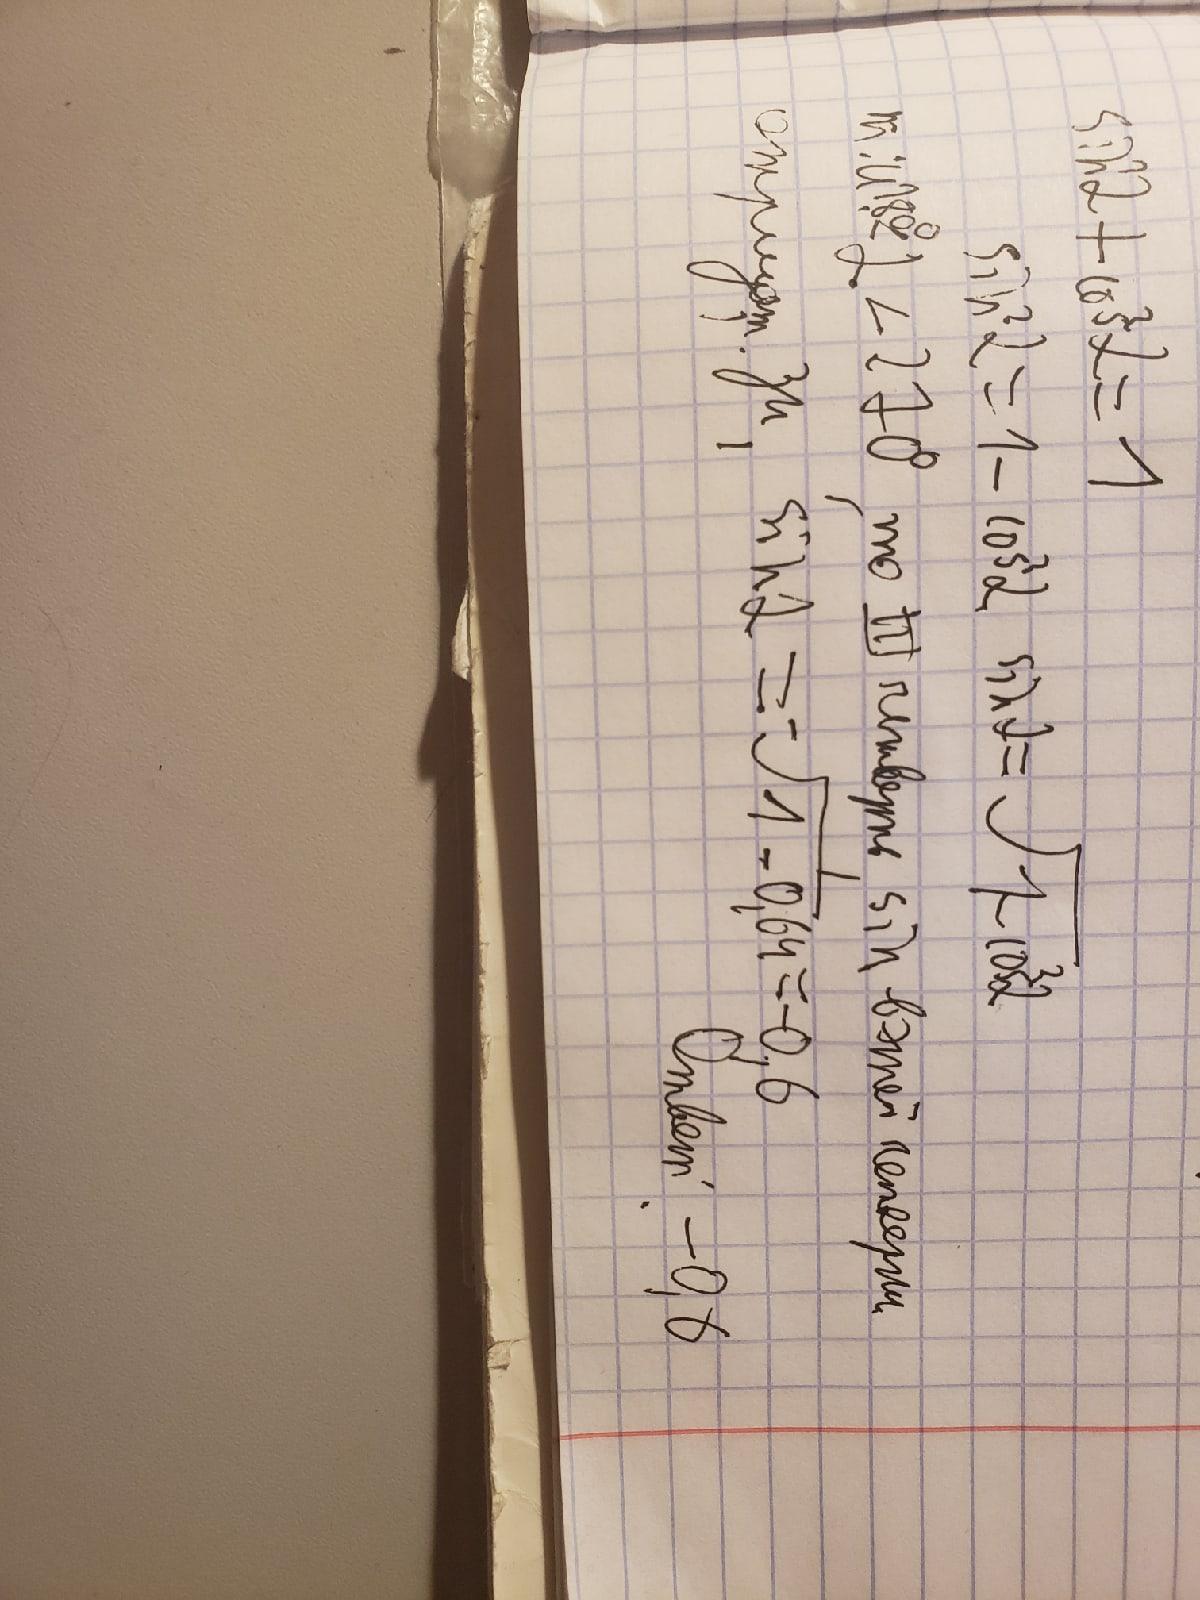 sin²α + cos²α = 1
sin²α = 1 - cos²α sinα = √1-cos²α
α < 270°, то III четверть, sin в этой четверти
отрицат. зн, sinα = -√1-0,64 = -0,6
Ответ: -0,6